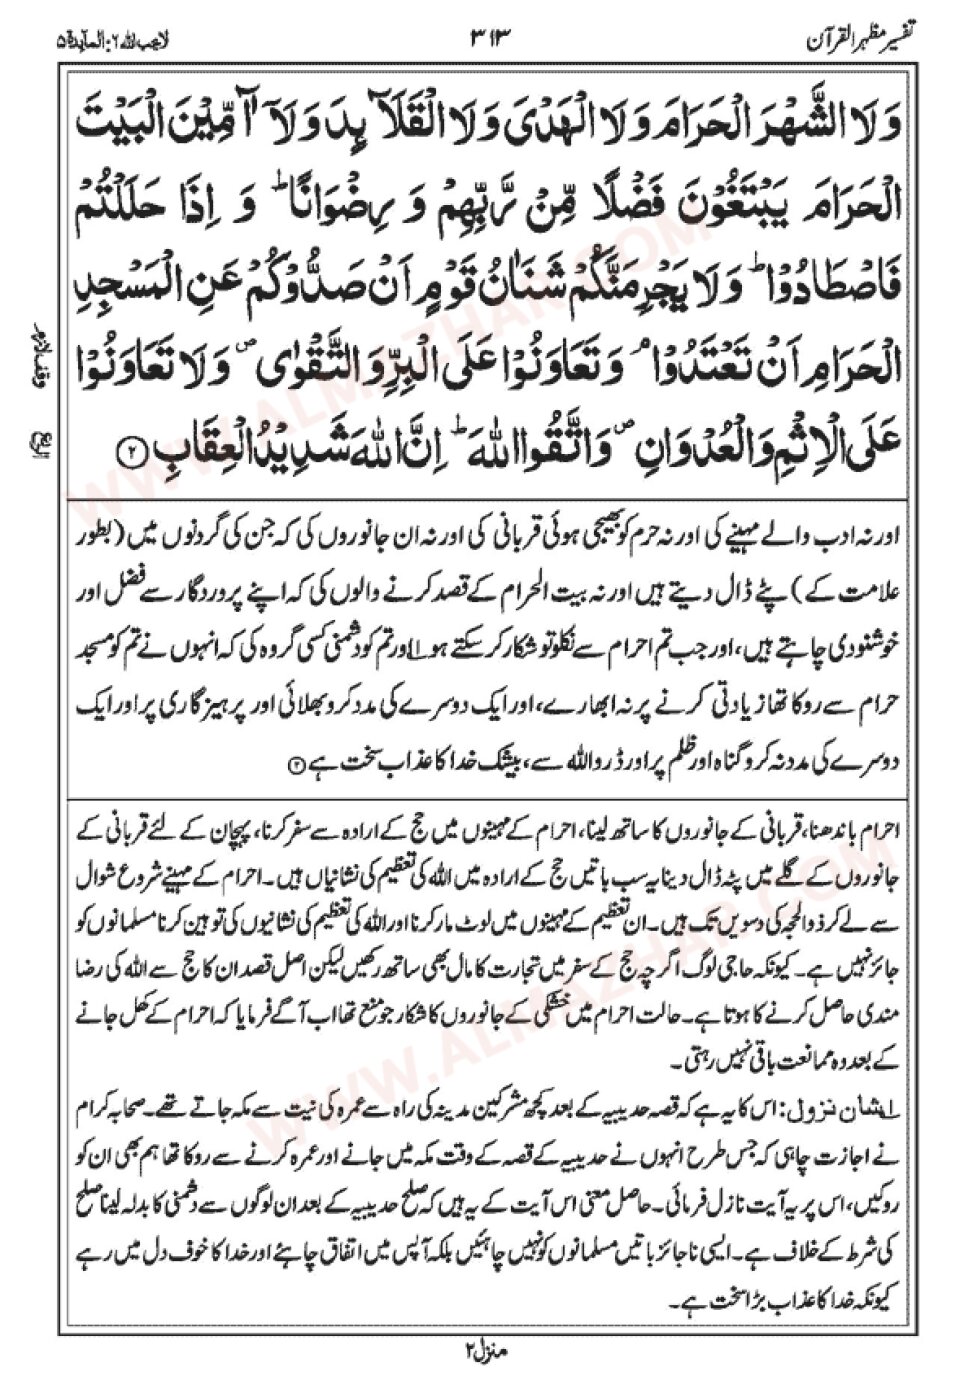 تفسیر مظہر القرآن
۳۱۳
لا یحب اللہ ۶: المآیدۃ ۵
وَلَا الشَّهْرَ الْحَرَامَ وَلَا الْهَدْیَ وَلَا الْقَلَآىِٕدَ وَلَاۤ آٰمِّیْنَ الْبَیْتَ
الْحَرَامَ یَبْتَغُوْنَ فَضْلًا مِّنْ رَّبِّهِمْ وَ رِضْوَانًا ؕ وَ اِذَا حَلَلْتُمْ
فَاصْطَادُوْا ؕ وَلَا یَجْرِمَنَّكُمْ شَنَاٰنُ قَوْمٍ اَنْ صَدُّوْكُمْ عَنِ الْمَسْجِدِ
الْحَرَامِ اَنْ تَعْتَدُوْا ۘ وَتَعَاوَنُوْا عَلَی الْبِرِّ وَ التَّقْوٰی ۪ وَلَا تَعَاوَنُوْا
عَلَی الْاِثْمِ وَالْعُدْوَانِ ۪ وَاتَّقُوا اللّٰهَ ؕ اِنَّ اللّٰهَ شَدِیْدُ الْعِقَابِ ﴿۲﴾
وقف لازم
الربع
اور نہ ادب والے مہینے کی اور نہ حرم کو بھیجی ہوئی قربانی کی اور نہ ان جانوروں کی کہ جن کی گردنوں میں (بطور
علامت کے) پٹے ڈال دیتے ہیں اور نہ بیت الحرام کے قصد کرنے والوں کی کہ اپنے پروردگار سے فضل اور
خوشنودی چاہتے ہیں، اور جب تم احرام سے نکلو تو شکار کر سکتے ہو ۱ اور تم کو دشمنی کسی گروہ کی کہ انہوں نے تم کو مسجد
حرام سے روکا تھا زیادتی کرنے پر نہ ابھارے، اور ایک دوسرے کی مدد کرو بھلائی اور پرہیزگاری پر اور ایک
دوسرے کی مدد نہ کرو گناہ اور ظلم پر اور ڈرو اللہ سے، بیشک خدا کا عذاب سخت ہے ﴿۲﴾
احرام باندھنا، قربانی کے جانوروں کا ساتھ لینا، احرام کے مہینوں میں حج کے ارادہ سے سفر کرنا، پہچان کے لئے قربانی کے
جانوروں کے گلے میں پٹہ ڈال دینا یہ سب باتیں حج کے ارادہ میں اللہ کی تعظیم کی نشانیاں ہیں۔ احرام کے مہینے شروع شوال
سے لے کر ذوالحجہ کی دسویں تک ہیں۔ ان تعظیم کے مہینوں میں لوٹ مار کرنا اور اللہ کی تعظیم کی نشانیوں کی توہین کرنا مسلمانوں کو
جائز نہیں ہے۔ کیونکہ حاجی لوگ اگرچہ حج کے سفر میں تجارت کا مال بھی ساتھ رکھیں لیکن اصل قصد ان کا حج سے اللہ کی رضا
مندی حاصل کرنے کا ہوتا ہے۔ حالت احرام میں خشکی کے جانوروں کا شکار جو منع تھا اب آگے فرمایا کہ احرام کے کھل جانے
کے بعد وہ ممانعت باقی نہیں رہتی۔
۱ شان نزول: اس کا یہ ہے کہ قصہ حدیبیہ کے بعد کچھ مشرکین مدینہ کی راہ سے عمرہ کی نیت سے مکہ جاتے تھے۔ صحابہ کرام
نے اجازت چاہی کہ جس طرح انہوں نے حدیبیہ کے قصہ کے وقت مکہ میں جانے اور عمرہ کرنے سے روکا تھا ہم بھی ان کو
روکیں، اس پر یہ آیت نازل فرمائی۔ حاصل معنی اس آیت کے یہ ہیں کہ صلح حدیبیہ کے بعد ان لوگوں سے دشمنی کا بدلہ لینا صلح
کی شرط کے خلاف ہے۔ ایسی ناجائز باتیں مسلمانوں کو نہیں چاہئیں بلکہ آپس میں اتفاق چاہئے اور خدا کا خوف دل میں رہے
کیونکہ خدا کا عذاب بڑا سخت ہے۔
منزل ۲
WWW.ALMAZHAR.COM
WWW.ALMAZHAR.COM